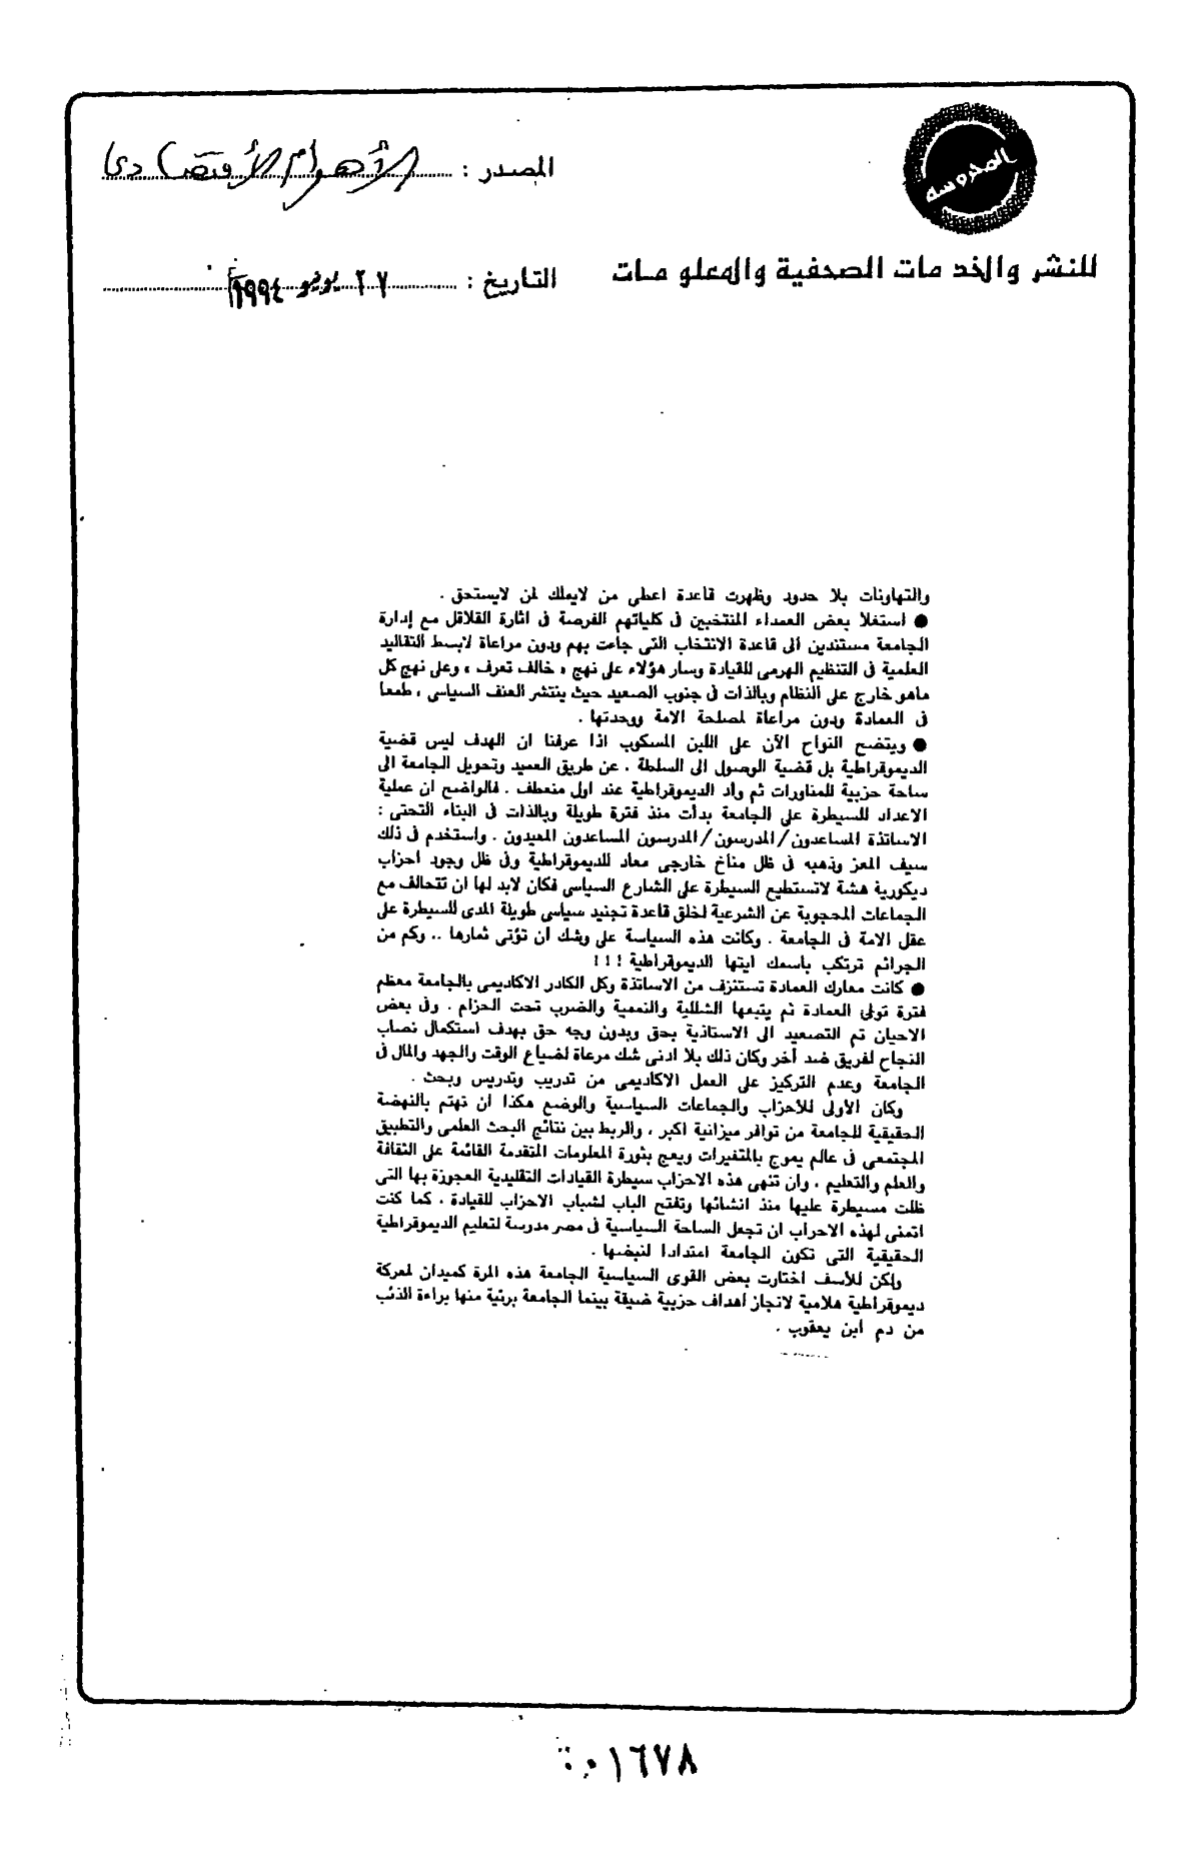 المحروسة
المصدر : الأهرام الاقتصادى
للنشر والخدمات الصحفية والمعلومات
التاريخ : ٢٧ يونيو ١٩٩٤
والتهاونات بلا حدود وظهرت قاعدة اعطى من لايملك لمن لايستحق .
● استغلا بعض العمداء المنتخبين فى كلياتهم الفرصة فى اثارة القلاقل مع إدارة
الجامعة مستندين الى قاعدة الانتخاب التى جاءت بهم ودون مراعاة لابسط التقاليد
العلمية فى التنظيم الهرمى للقيادة وسار هؤلاء على نهج « خالف تعرف » وعلى نهج كل
ماهو خارج على النظام وبالذات فى جنوب الصعيد حيث ينتشر العنف السياسى ، طمعا
فى العمادة ودون مراعاة لمصلحة الامة ووحدتها .
● ويتضح النواح الآن على اللبن المسكوب اذا عرفنا ان الهدف ليس قضية
الديموقراطية بل قضية الوصول الى السلطة . عن طريق العميد وتحويل الجامعة الى
ساحة حزبية للمناورات ثم وأد الديموقراطية عند اول منعطف . فالواضح ان عملية
الاعداد للسيطرة على الجامعة بدأت منذ فترة طويلة وبالذات فى البناء التحتى :
الاساتذة المساعدون/المدرسون/المدرسون المساعدون المعيدون . واستخدم فى ذلك
سيف المعز وذهبه فى ظل مناخ خارجى معاد للديموقراطية وفى ظل وجود احزاب
ديكورية هشة لاتستطيع السيطرة على الشارع السياسى فكان لابد لها ان تتحالف مع
الجماعات المحجوبة عن الشرعية لخلق قاعدة تجنيد سياسى طويلة المدى للسيطرة على
عقل الامة فى الجامعة . وكانت هذه السياسة على وشك ان تؤتى ثمارها .. وكم من
الجرائم ترتكب باسمك ايتها الديموقراطية !!!
● كانت معارك العمادة تستنزف من الاساتذة وكل الكادر الاكاديمى بالجامعة معظم
فترة تولى العمادة ثم يتبعها الشللية والنعمية والضرب تحت الحزام . وفى بعض
الاحيان تم التصعيد الى الاستاذية بحق وبدون وجه حق بهدف استكمال نصاب
النجاح لفريق ضد أخر وكان ذلك بلا ادنى شك مرعاة لضياع الوقت والجهد والمال فى
الجامعة وعدم التركيز على العمل الاكاديمى من تدريب وتدريس وبحث .
وكان الأولى للأحزاب والجماعات السياسية والوضع هكذا ان تهتم بالنهضة
الحقيقية للجامعة من توافر ميزانية اكبر ، والربط بين نتائج البحث العلمى والتطبيق
المجتمعى فى عالم يموج بالمتغيرات ويعج بثورة المعلومات المتقدمة القائمة على الثقافة
والعلم والتعليم . وان تنهى هذه الاحزاب سيطرة القيادات التقليدية العجوزة بها التى
ظلت مسيطرة عليها منذ انشائها وتفتح الباب لشباب الاحزاب للقيادة . كما كنت
اتمنى لهذه الاحراب ان تجعل الساحة السياسية فى مصر مدرسة لتعليم الديموقراطية
الحقيقية التى تكون الجامعة امتدادا لنبضها .
ولكن للأسف اختارت بعض القوى السياسية الجامعة هذه المرة كميدان لمعركة
ديموقراطية هلامية لانجاز أهداف حزبية ضيقة بينما الجامعة برئية منها براءة الذئب
من دم ابن يعقوب .
٠١٦٧٨